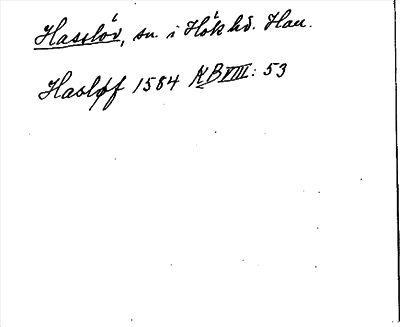 Hasslöv, sn. i Höks hd. Hall.
Hasløf 1584 KB VIII: 53